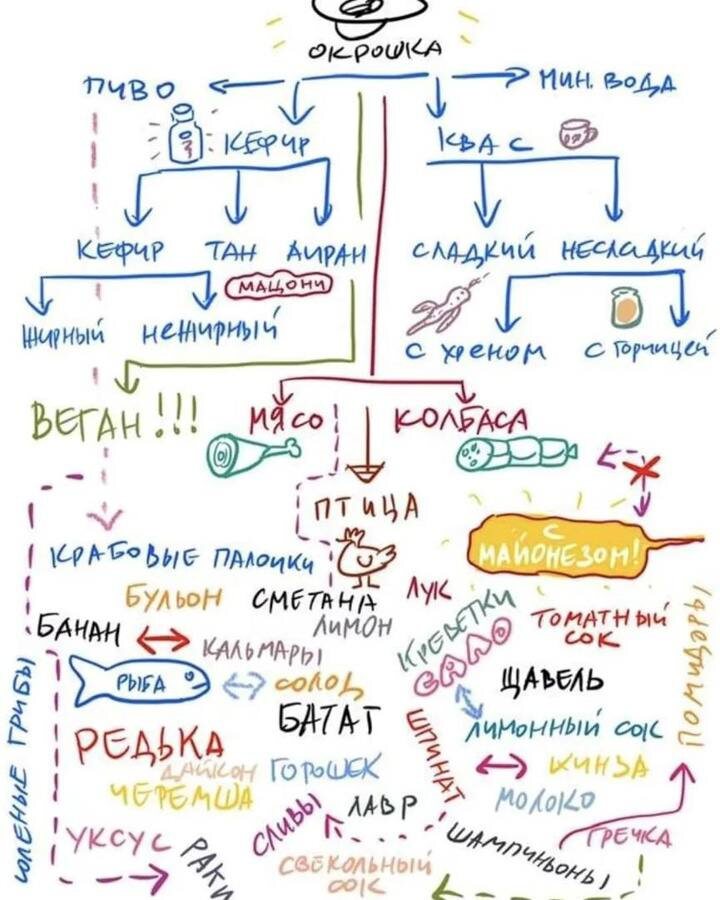 ОКРОШКА
ПИВО
МИН. ВОДА
КЕФИР
КВАС
КЕФИР ТАН АИРАН
СЛАДКИЙ НЕСЛАДКИЙ
МАЦОНИ
ЖИРНЫЙ НЕЖИРНЫЙ
С ХРЕНОМ С ГОРЧИЦЕЙ
ВЕГАН!!!
МЯСО
КОЛБАСА
ПТИЦА
С
МАЙОНЕЗОМ!
КРАБОВЫЕ ПАЛОЧКИ
БУЛЬОН
СМЕТАНА
ЛУК
КРЕВЕТКИ
ТОМАТНЫЙ
СОК
ПОМИДОРЫ
БАНАН
ЛИМОН
КАЛЬМАРЫ
САЛО
ЩАВЕЛЬ
СОЛЕНЫЕ ГРИБЫ
РЫБА
СОЛОД
БАТАТ
ЛИМОННЫЙ СОК
ШПИНАТ
РЕДЬКА
ДАЙКОН
ГОРОШЕК
КИНЗА
ЧЕРЕМША
ЛАВР
МОЛОКО
СЛИВЫ
УКСУС
РАКИ
ШАМПИНЬОНЫ
ГРЕЧКА
СВЕКОЛЬНЫЙ
СОК